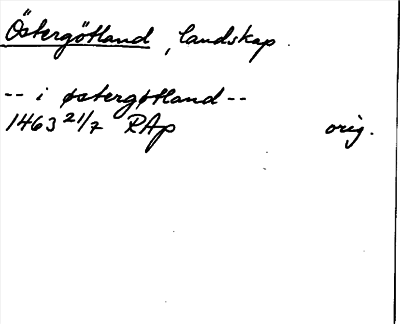 Östergötland, landskap.
-- i østergøtland --
1463 21/7 RAp orig.